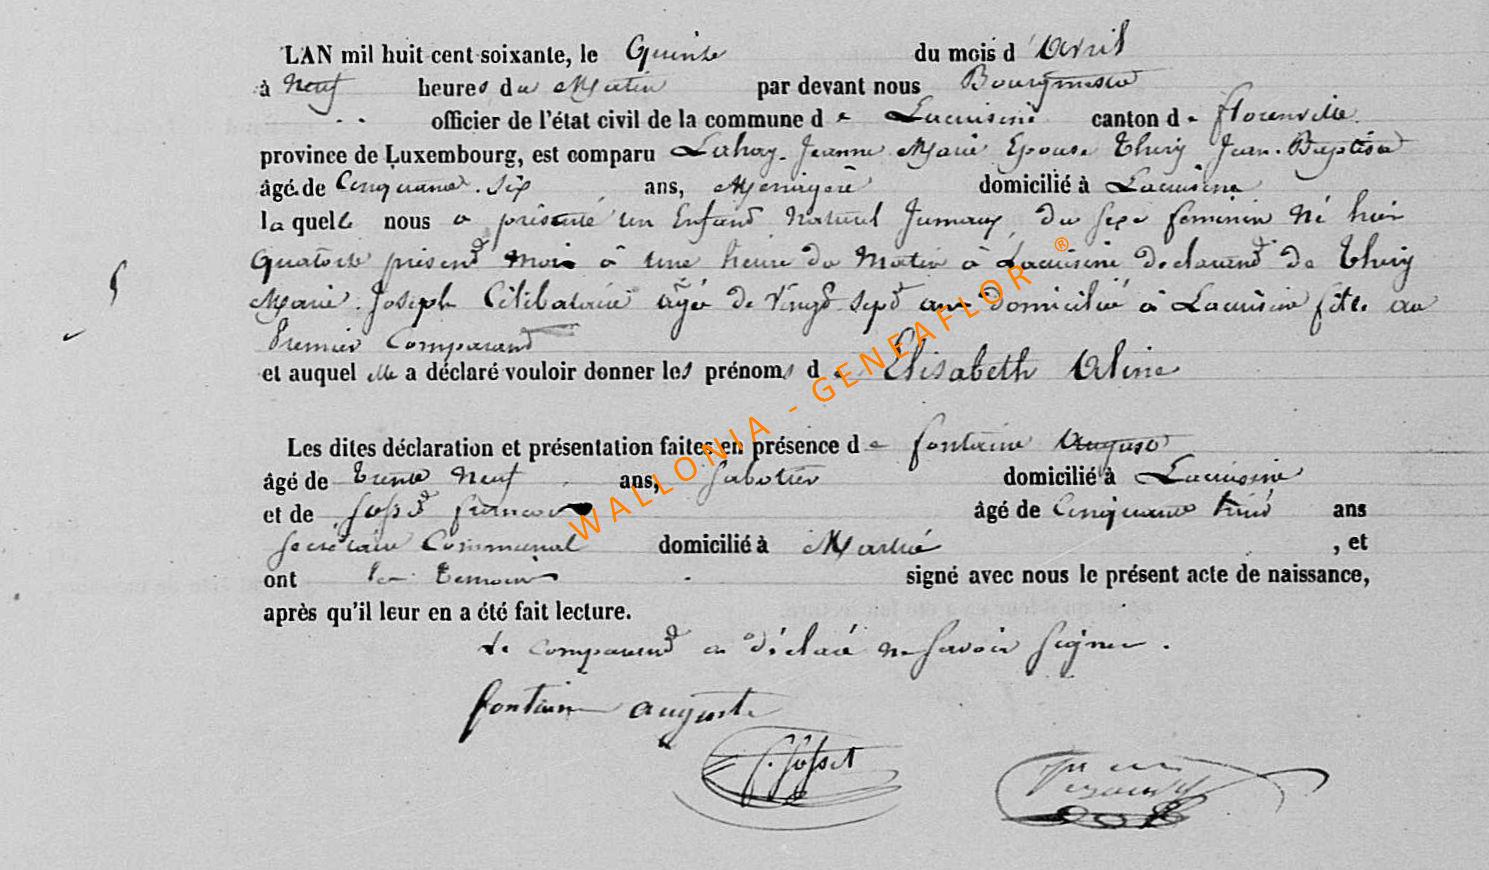 L'AN mil huit cent soixante, le Quinze du mois d'Avril
à Neuf heures du Matin par devant nous Bourgmestre
officier de l'état civil de la commune de Lacuisine canton de florenville
province de Luxembourg, est comparu Lahay Jeanne Marie Epouse Thiry Jean-Baptiste
âgé de Cinquante-Six ans, Menagère domicilié à Lacuisine
laquelle nous a présenté un Enfant Naturel Jumaux, du sexe feminin Né hier
Quatorze présent mois à une heure du Matin à Lacuisine, déclarent de Thiry
Marie Joseph Célibataire âgée de Vingt Sept ans domicilié à Lacuisine fille au
Premier Comparant
et auquel elle a déclaré vouloir donner les prénoms de Elisabeth Aline
Les dites déclaration et présentation faites en présence de fontaine Auguste
âgé de trente Neuf ans, Sabotier domicilié à Lacuisine
et de Josset François âgé de Cinquante ans
Secrétaire Communal domicilié à Martué , et
ont les temoins signé avec nous le présent acte de naissance,
après qu'il leur en a été fait lecture.
Le comparant a déclaré ne savoir signer.
fontaine auguste
f. Josset
WALLONIA - GENEAFLOR ®